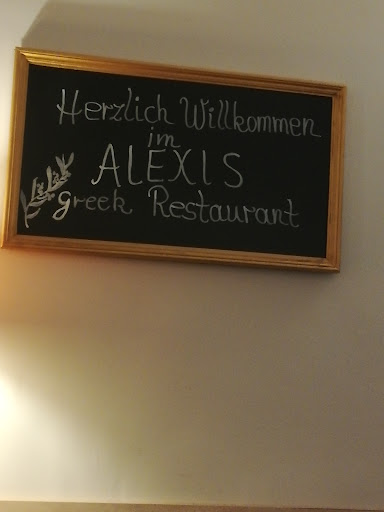 Herzlich Willkommen
im
ALEXIS
greek Restaurant